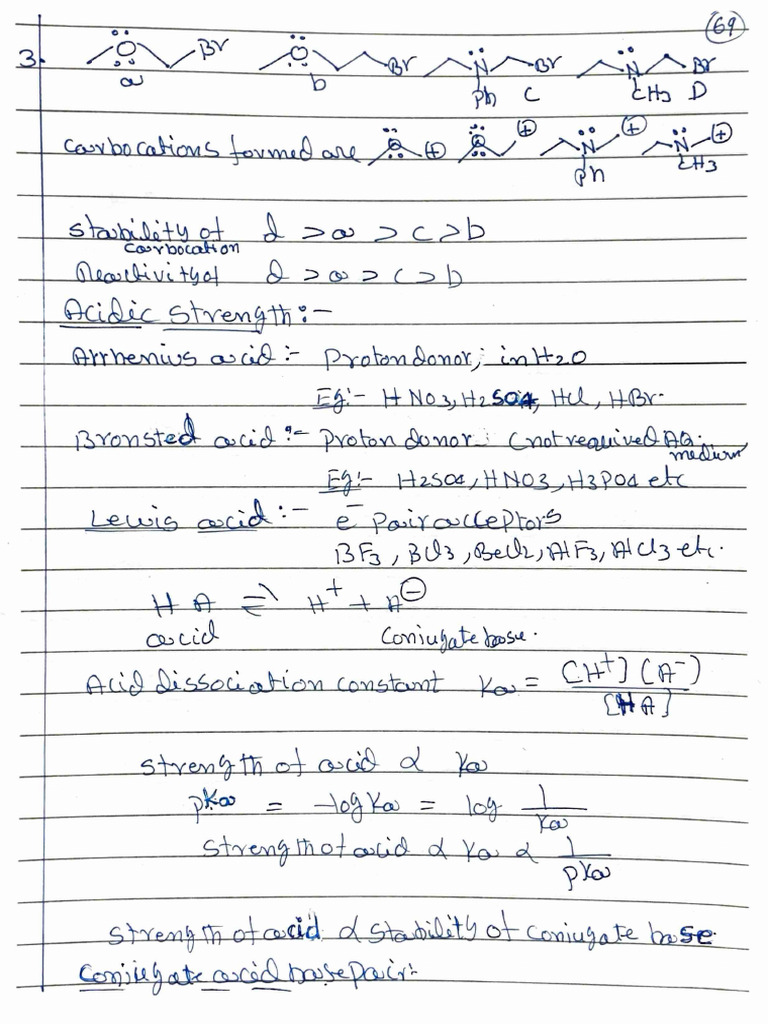 69
3. Ö Br Ö Br N Br N Br
a b Ph C CH3 D
Carbocations formed are Ö ⊕ Ö ⊕ N ⊕ N ⊕
Ph CH3
Stability of carbocation d > a > c > b
Reactivity of d > a > c > b
Acidic Strength :-
Arrhenius acid :- Proton donor, in H2O
Eg:- HNO3, H2SO4, HCl, HBr.
Bronsted acid :- Proton donor (not required AQ. medium
Eg:- H2SO4, HNO3, H3PO4 etc
Lewis acid :- e⁻ Pair acceptors
BF3, BCl3, BeCl2, AlF3, AlCl3 etc.
HA ⇌ H⁺ + A⊖
acid Conjugate base.
Acid dissociation constant Ka = [H⁺] [A⁻] / [HA]
Strength of acid ∝ Ka
pKa = -log Ka = log 1/Ka
Strength of acid ∝ Ka ∝ 1/pKa
Strength of acid ∝ Stability of conjugate base.
Conjugate acid base pair:-